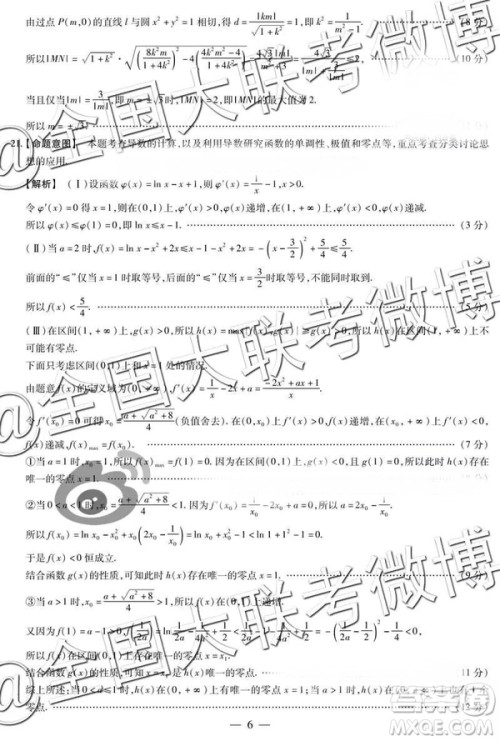 由过点 P(m,0)的直线 l 与圆 x²+y²=1 相切,得 d=|km|/√(1+k²)=1,即 k²=
(8分)
所以|MN|=√(1+k²)·
(10分)
当且仅当|m|=3/|m|,即 m=±√3时,|MN|=2,即|MN|的最大值为2.
所以 m=±√3.
21.【命题意图】 本题考查导数的计算,以及利用导数研究函数的单调性、极值和零点等,重点考查分类讨论思
想的应用.
【解析】 (Ⅰ)设函数 φ(x)=ln x-x+1,则 φ'(x)=1/x-1,x>0.
令 φ'(x)=0 得 x=1,则在(0,1)上,φ'(x)>0,φ(x)递增,在(1,+∞)上,φ'(x)<0,φ(x)递减.
所以 φ(x)≤φ(1)=0,即 ln x≤x-1. (3分)
(Ⅱ)当 a=2 时,f(x)=ln x-x²+2x≤x-1-x²+2x=-(x-3/2)²+5/4≤5/4.
前面的“≤”仅当 x=1时取等号,后面的“≤”仅当 x=3/2时取等号,不能同时取到.
所以 f(x)<5/4. (5分)
(Ⅲ)在区间(1,+∞)上,g(x)>0,所以 h(x)=max{f(x),g(x)}≥g(x)>0,所以 h(x)在区间(1,+∞)上不
可能有零点.
下面只考虑区间(0,1)上和 x=1 处的情况.
由题意 f(x)的定义域为(0,+∞),f'(x)=1/x-2x+a=(-2x²+ax+1)/x.
令 f'(x₀)=0 可得 x₀=(a+√(a²+8))/4(负值舍去).在(0,x₀)上 f'(x)>0,f(x)递增,在(x₀,+∞)上 f'(x)<0,
f(x)递减,f(x)max=f(x₀). (7分)
①当 a=1 时,x₀=1,所以 f(x)max=f(1)=0.因为在区间(0,1)上,g(x)<0,且 g(1)=0,所以此时 h(x)存在
唯一的零点 x=1.
②当 0<a<1 时,x₀=(a+√(a²+8))/4<1. 因为 f'(x₀)=1/x₀-2x₀+a=0,所以 a=2x₀-1/x₀.
所以 f(x₀)=ln x₀-x₀²+x₀(2x₀-1/x₀)=ln x₀+x₀²-1<ln 1+1²-1=0.
于是 f(x)<0 恒成立.
结合函数 g(x)的性质,可知此时 h(x)存在唯一的零点 x=1.
③当 a>1 时,x₀=(a+√(a²+8))/4>1,所以 f(x)在(0,1)上递增.
又因为 f(1)=a-1>0,
所以 f(x)在区间(0,1)上存在唯一的零点 x=x₁.
结合函数 g(x)的性质,可知 x=x₁是 h(x)的唯一零点.
综上所述:当 0<a≤1 时,h(x)在(0,+∞)上有唯一的零点 x=1;当 a>1 时,h(x)在(0,+∞)上也有1个
零点. (12分)
— 6 —
@全国大联考微博
@全国大联考微博
@全国大联考微博